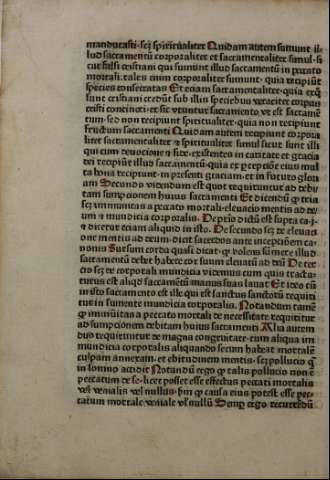 manducasti· scz spiritualiter Quidam autem sumunt il-
lud sacramentū corporaliter et sacramentaliter simul· si-
cut falsi cristiani qui sumunt illud sacramentū in peccato
mortali· tales enim corporaliter sumunt· quia recipiūt
species consecratas Et eciam sacramentaliter· quia ex quo
sunt cristiani credūt sub illis speciebus veraciter corpus
cristi contineri· et sic utuntur sacramento ut est sacramē-
tum· sed non recipiunt spiritualiter· quia non recipiunt
fructum sacramenti Quidam autem recipiunt corpora-
liter sacramentaliter et spiritualiter simul sicut sunt illi
qui cum devocione et fide· existentes in caritate et gracia
dei recipiūt illud sacramentū· quia ex percepcione eius mul
ta bona recipiunt in presenti graciam· et in futuro glori-
am Secundo videndum est quot requiruntur ad debi-
tam sumpcionem huius sacramenti Et dicendū q tria
scz immunitas a peccato mortali· elevacio mentis ad de-
um et mundicia corporalis· De primo dictū est supra ca·
et dicetur eciam aliquid in isto· De secundo scz de elevaci-
one mentis ad deum· dicit sacerdos ante incepcionem ca-
nonis Sursum corda quasi dicat· q volens sumere illud
sacramentū debet habere cor suum elevatū ad deū De ter-
cio scz de corporali mundicia videmus cum quis tractu-
turus est aliqd sacramentū manus suas lavat Et ideo cū
in isto sacramento est ille qui est sanctus sanctorū requiri-
tur in sumente mundicia corporalis· Notandum tamē
q imunitas a peccato mortali de necessitate requiritur
ad sumpcionem debitam huius sacramenti Alia autem
duo requiruntur de magna congruitate· cum aliqua im
mundicia corporalis aliquando secum habeat mortalē
culpam annexam· et ebitudinem mentis· ut pollucio q
in somno accidit Notandū ergo q talis pollucio non ē
peccatum de se· licet posset esse effectus peccati mortalis
vel venialis vel nullius· hm q causa eius potest esse pec-
catum mortale· veniale vel nullū Samp ergo recurrendū